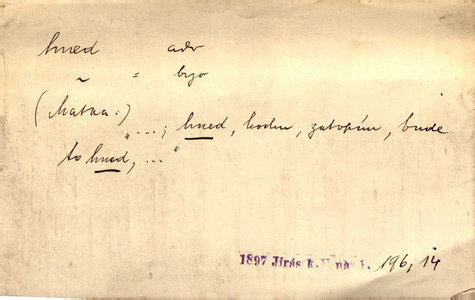 hned adv
~ = brzo
(Matka:)
"...; hned, hochu, zatopím, bude
to hned, ..."
1897 Jirás 196, 14